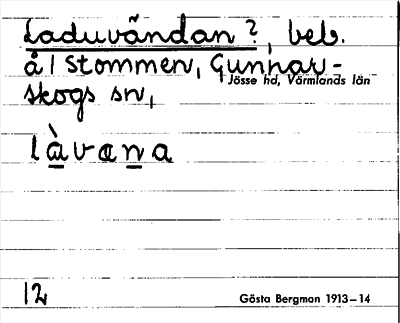 Laduvändan?, beb.
å 1 Stommen, Gunnar-
Jösse hd, Värmlands län
skogs sn,
làvana
12
Gösta Bergman 1913–14